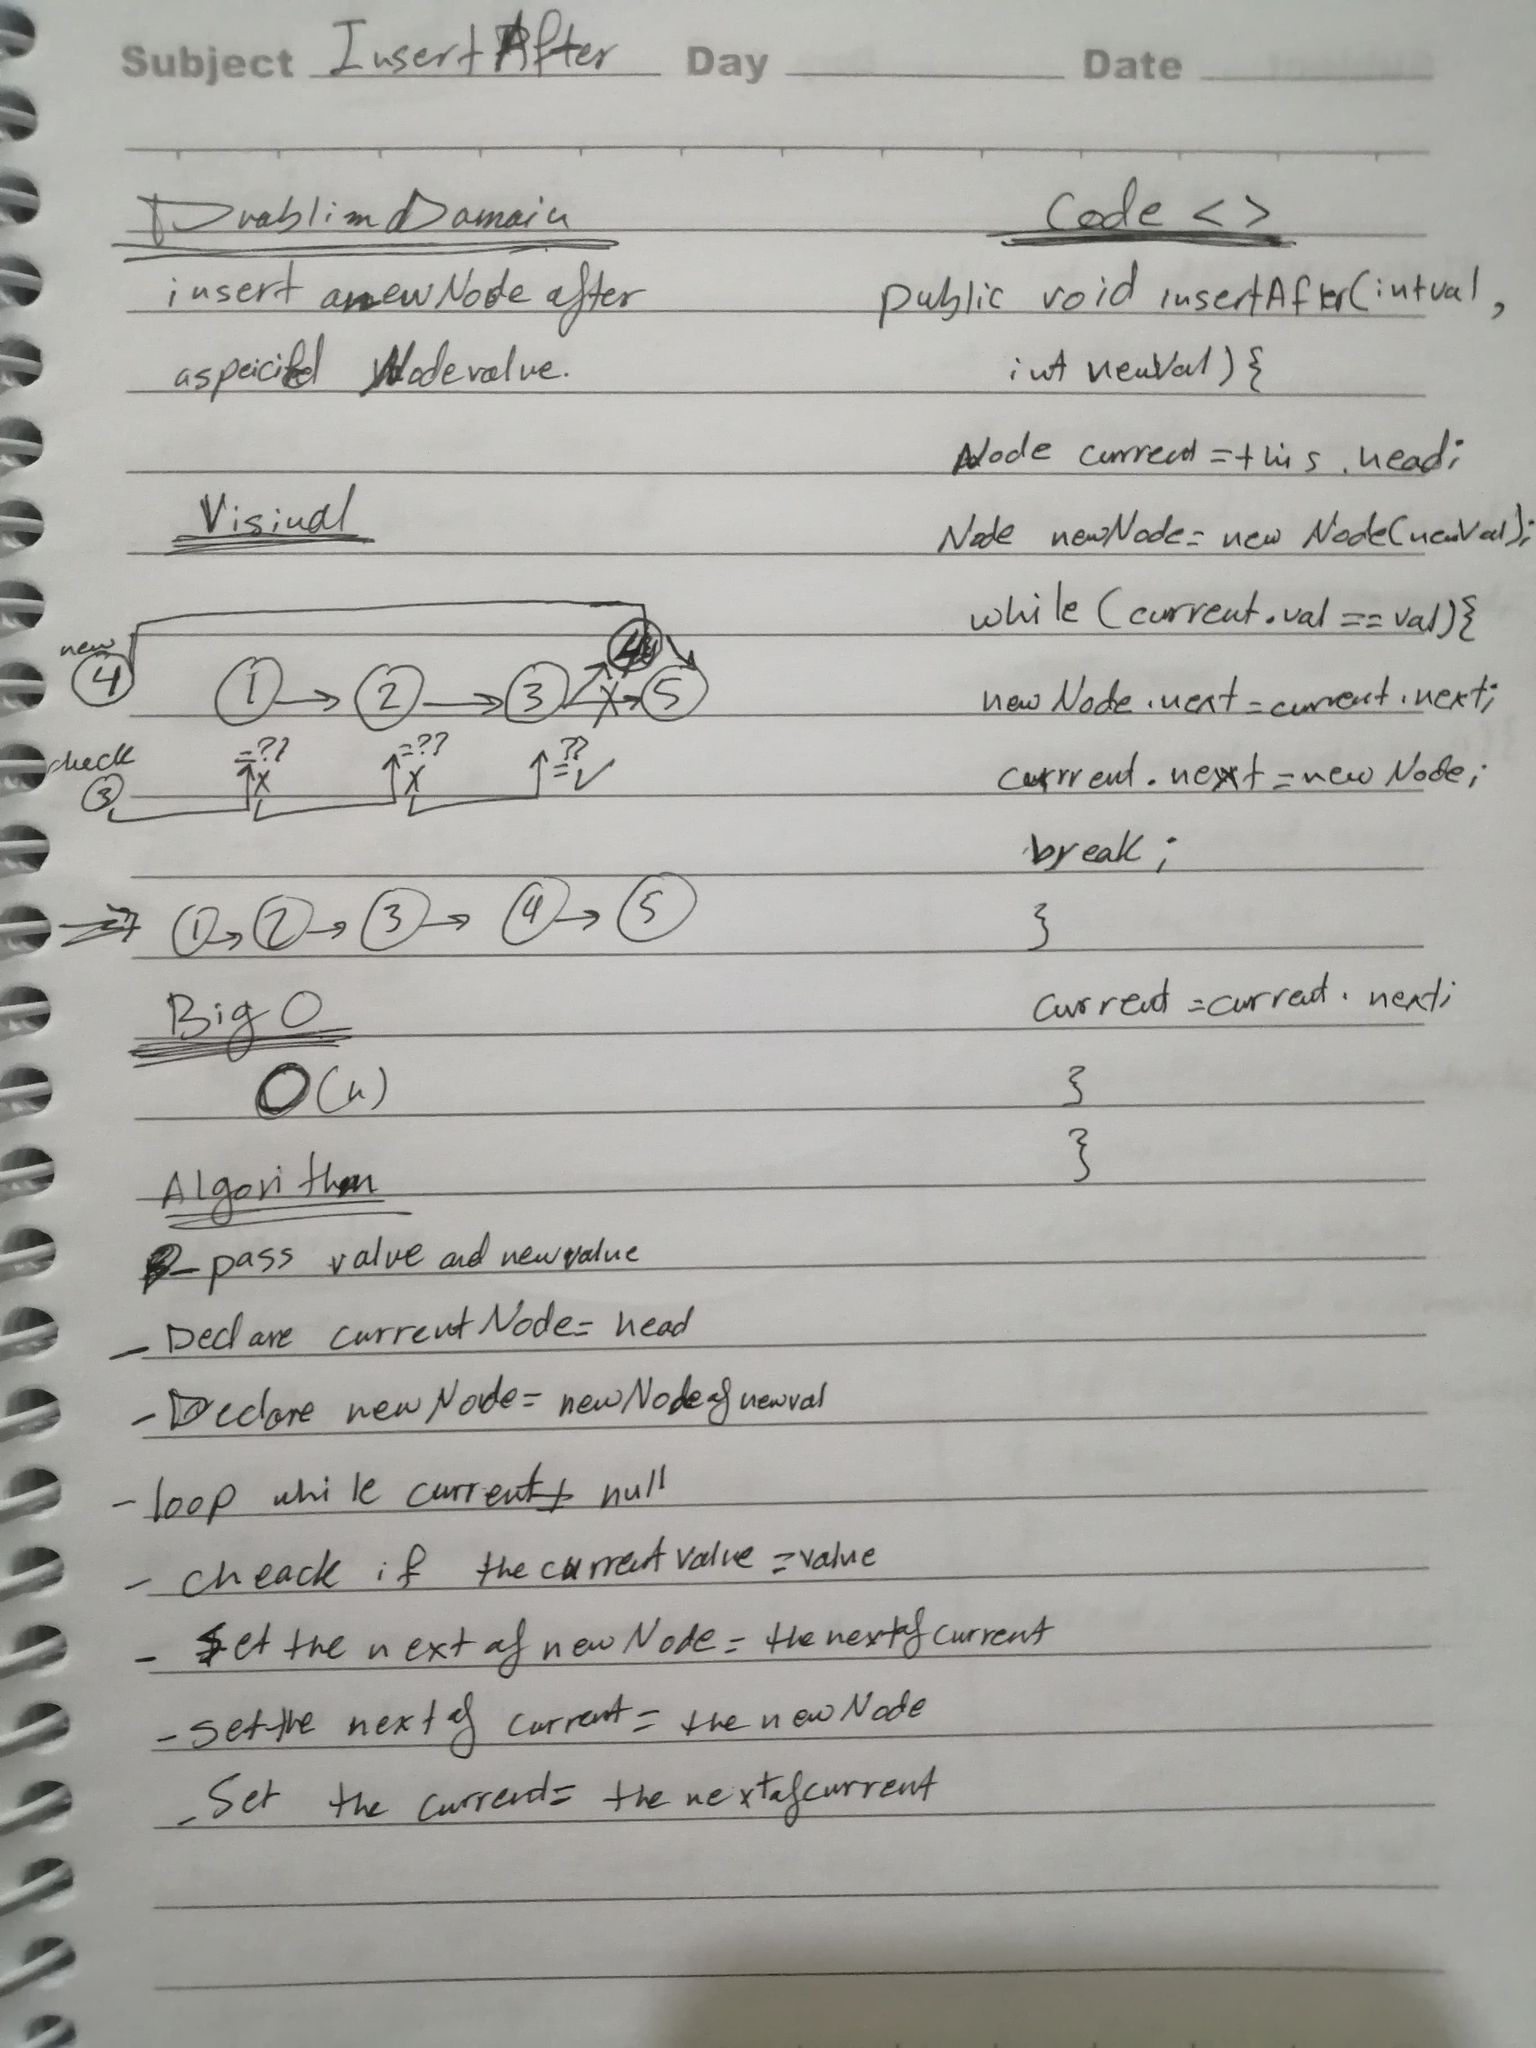 Subject Insert After Day Date
Problim Domain
insert a new Node after
a speicifed Node value.
Visiual
new
4
4
1 2 3 X 5
check
3
=?? =?? ??
X X = ✓
1 2 3 4 5
Big O
O(n)
Algorithm
- pass value and new value
- Declare current Node = head
- Declare new Node = new Node of newval
- loop while current ≠ null
- cheack if the current value = value
- Set the next of new Node = the next of current
- Set the next of current = the new Node
- Set the current = the next of current
Code < >
public void insertAfter(int val,
int newVal) {
Node current = this.head;
Node newNode = new Node(newVal);
while (current.val == val) {
newNode.next = current.next;
currrent.next = new Node;
break;
}
current = current.next;
}
}